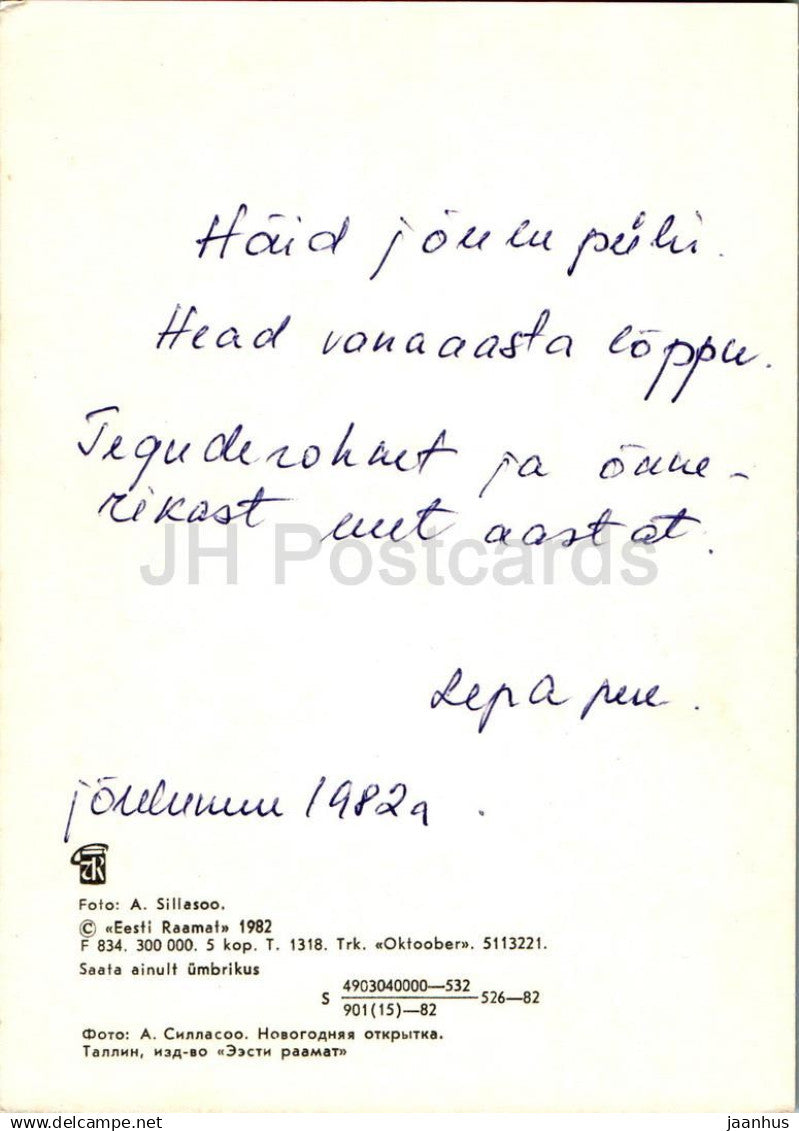 Häid jõulu pühi.
Head vanaaasta lõppu.
Teguderohket ja õnne-
rikast uut aastat.
JH Postcards
jõulukuu 1982a.
Foto: A. Sillasoo.
© «Eesti Raamat» 1982
F 834. 300 000. 5 kop. T. 1318. Trk. «Oktoober». 5113221.
Saata ainult ümbrikus
S 4903040000—532
901(15)—82 526—82
Фото: А. Силласоо. Новогодняя открытка.
Таллин, изд-во «Ээсти раамат»
delcampe.net
jaanhus